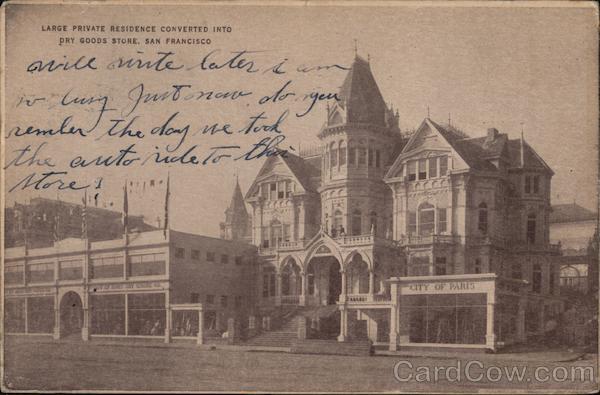 LARGE PRIVATE RESIDENCE CONVERTED INTO
DRY GOODS STORE, SAN FRANCISCO
will write later i am
so busy Just now do you
rember the day we took
the auto ride to this
store?
CITY OF PARIS DRY GOODS CO.
CITY OF PARIS
CardCow.com